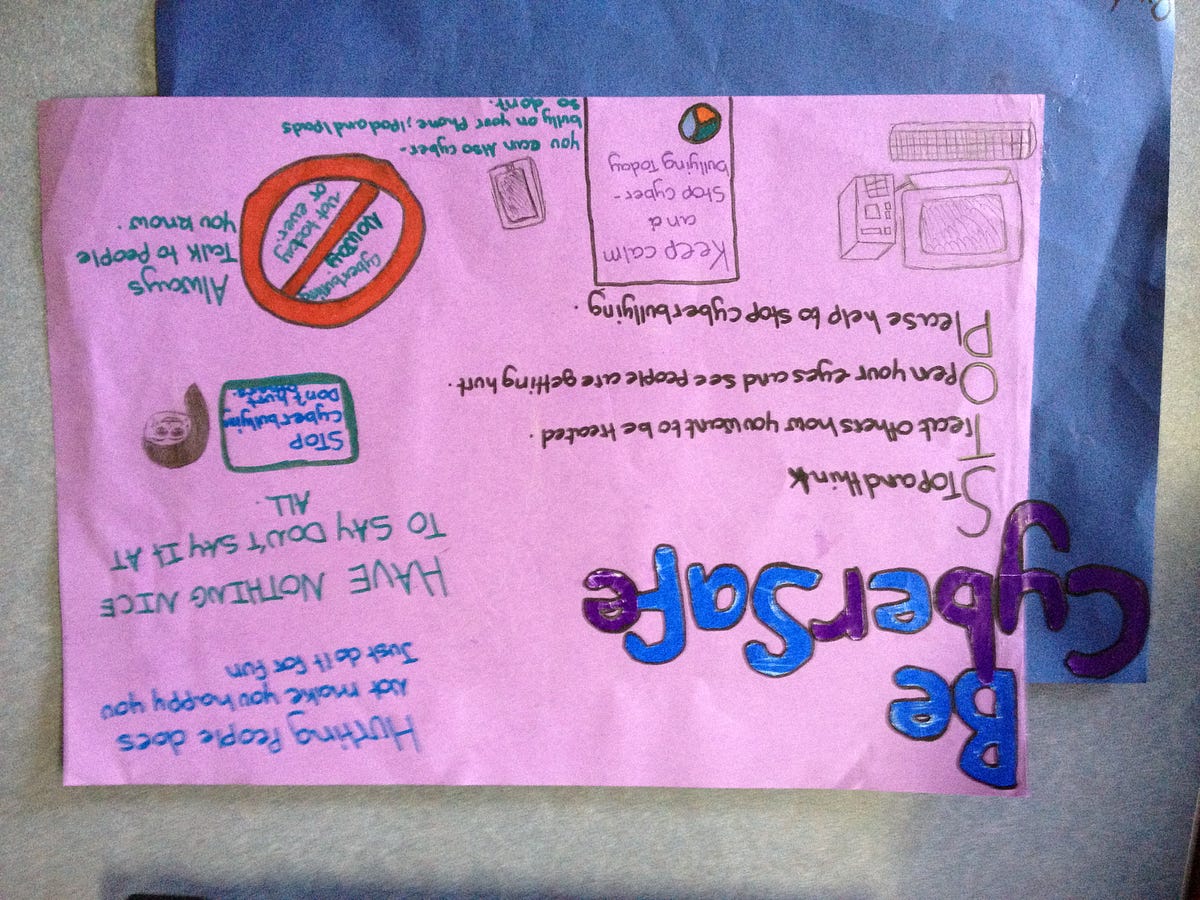 Be
CyberSafe
Stop and think
Treat others how you want to be treated.
Open your eyes and see People are getting hurt.
Please help to stop cyberbullying.
Keep calm
and
Stop Cyber-
bullying Today
you can Also cyber-
bully on your Phone, iPod and Ipads
so don't.
Hurting People does
Not make you happy you
Just do it for fun
HAVE NOTHING NICE
TO SAY DON'T SAY It AT
ALL.
STOP
cyberbullying
Don't hurt
Always
Talk to People
you know.
Cyberbullying
NOWAY
Not today
or ever.